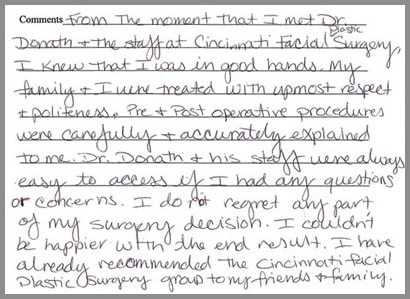 Comments From the moment that I met Dr.
Plastic
Donath + the staff at Cincinnati Facial Surgery,
I knew that I was in good hands. My
family + I were treated with upmost respect
+ politeness. Pre + Post operative procedures
were carefully + accurately explained
to me. Dr. Donath + his staff were always
easy to access if I had any questions
or concerns. I do not regret any part
of my surgery decision. I couldn't
be happier with the end result. I have
already recommended the Cincinnati Facial
Plastic Surgery group to my friends + family.